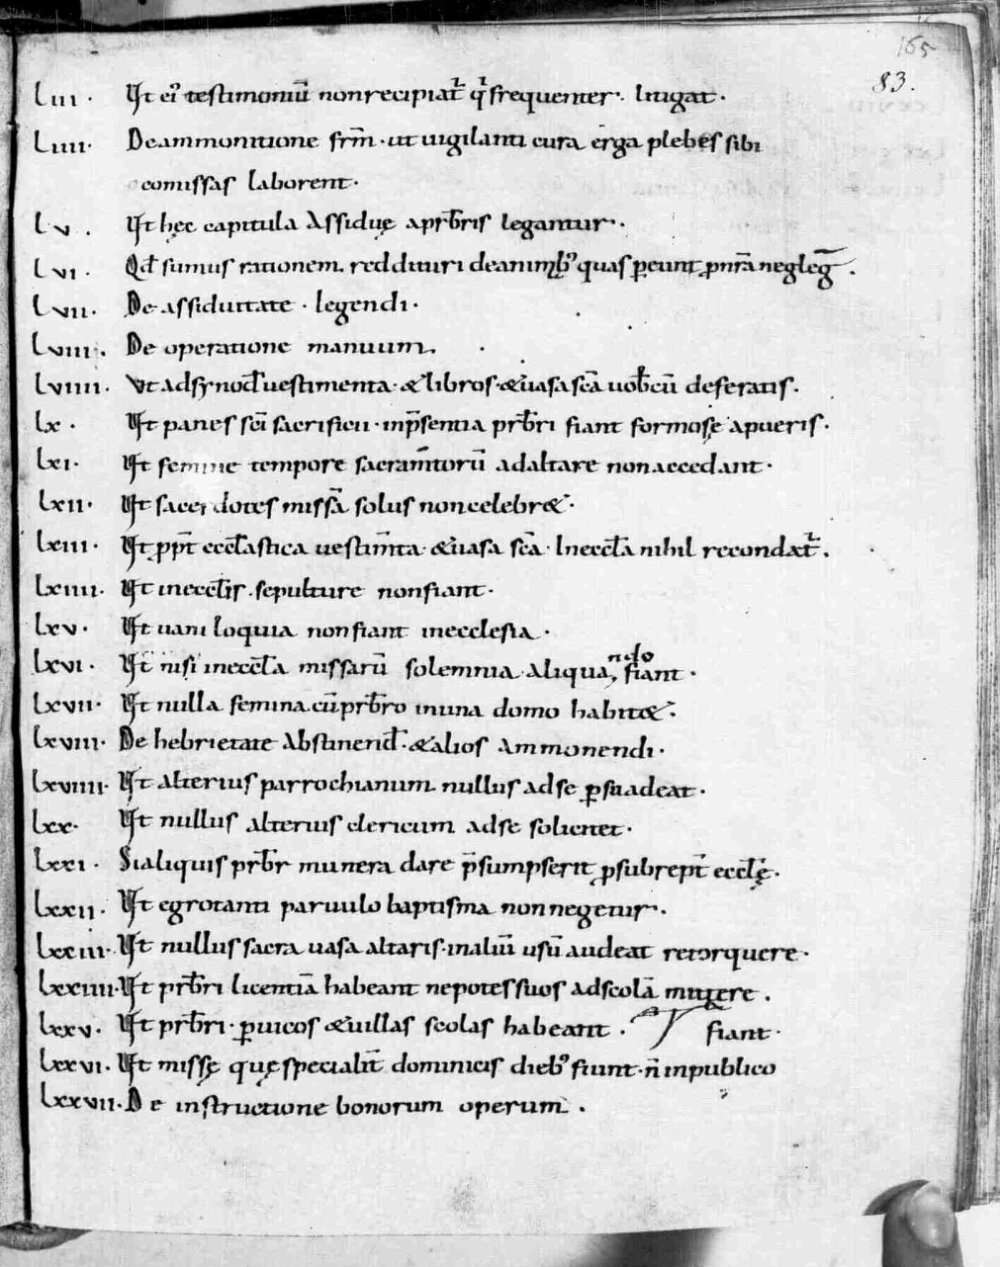 165
83.
Liii. Ut ei' testimoniū non recipiat᷑ q' frequenter. litigat.
Liiii. De ammonitione frm̄. ut uigilanti cura erga plebes sibi
comissas laborent.
Lv. Ut hęc capitula Assiduę a prb̄ris legantur.
Lvi. Qđ sumus rationem reddituri de animab' quas ꝑeunt ꝓ nr̄a negleg̅.
Lvii. De assiduitate. legendi.
Lviii. De operatione manuum.
Lviiii. Ut ad synođ uestimenta. & libros. & uasa sc̄a uob̄cū deferatis.
Lx. Ut panes sc̄i sacrificii. in p̄sentia prb̄ri fiant formosę a pueris.
Lxi. Ut femine tempore sacram̄torū ad altare non accedant.
Lxii. Ut sacerdotes missā solus non celebr&.
Lxiii. Ut ꝓpt̄ eccl̄astica uestim̄ta. & uasa sc̄a. In eccl̄a nihil recondat᷑.
Lxiiii. Ut in eccl̄is. sepulture non fiant.
Lxv. Ut uaniloquia non fiant in ecclesia.
Lxvi. Ut nisi in eccl̄a missarū solemnia. aliquando fiant.
Lxvii. Ut nulla femina cū prb̄ro in una domo habit&.
Lxviii. De hebrietate Abstinenđ. & alios Ammonendi.
Lxviiii. Ut alterius parrochianum nullus ad se ꝑsuadeat.
Lxx. Ut nullus alterius clericum ad se solicitet.
Lxxi. Si aliquis prb̄r munera dare p̄sumpserit ꝓ subrept̄ eccl̄ę.
Lxxii. Ut egrotanti paruulo baptisma non negetur.
Lxxiii. Ut nullus sacra uasa altaris. in aliū usū audeat retorquere.
Lxxiiii. Ut prb̄ri licentiā habeant nepotes suos ad scolā mittere.
Lxxv. Ut prb̄ri. ꝑ uicos & uillas scolas habeant. fiant.
Lxxvi. Ut missę quę specialit̄ dominicis dieb' fiunt. n̄ in publico
Lxxvii. De instructione bonorum operum.